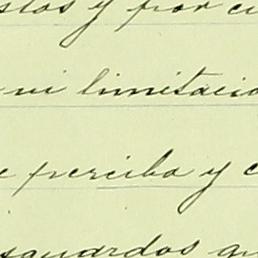 stos y por cu
ni limitacio
e perciba y c
sguardos qu